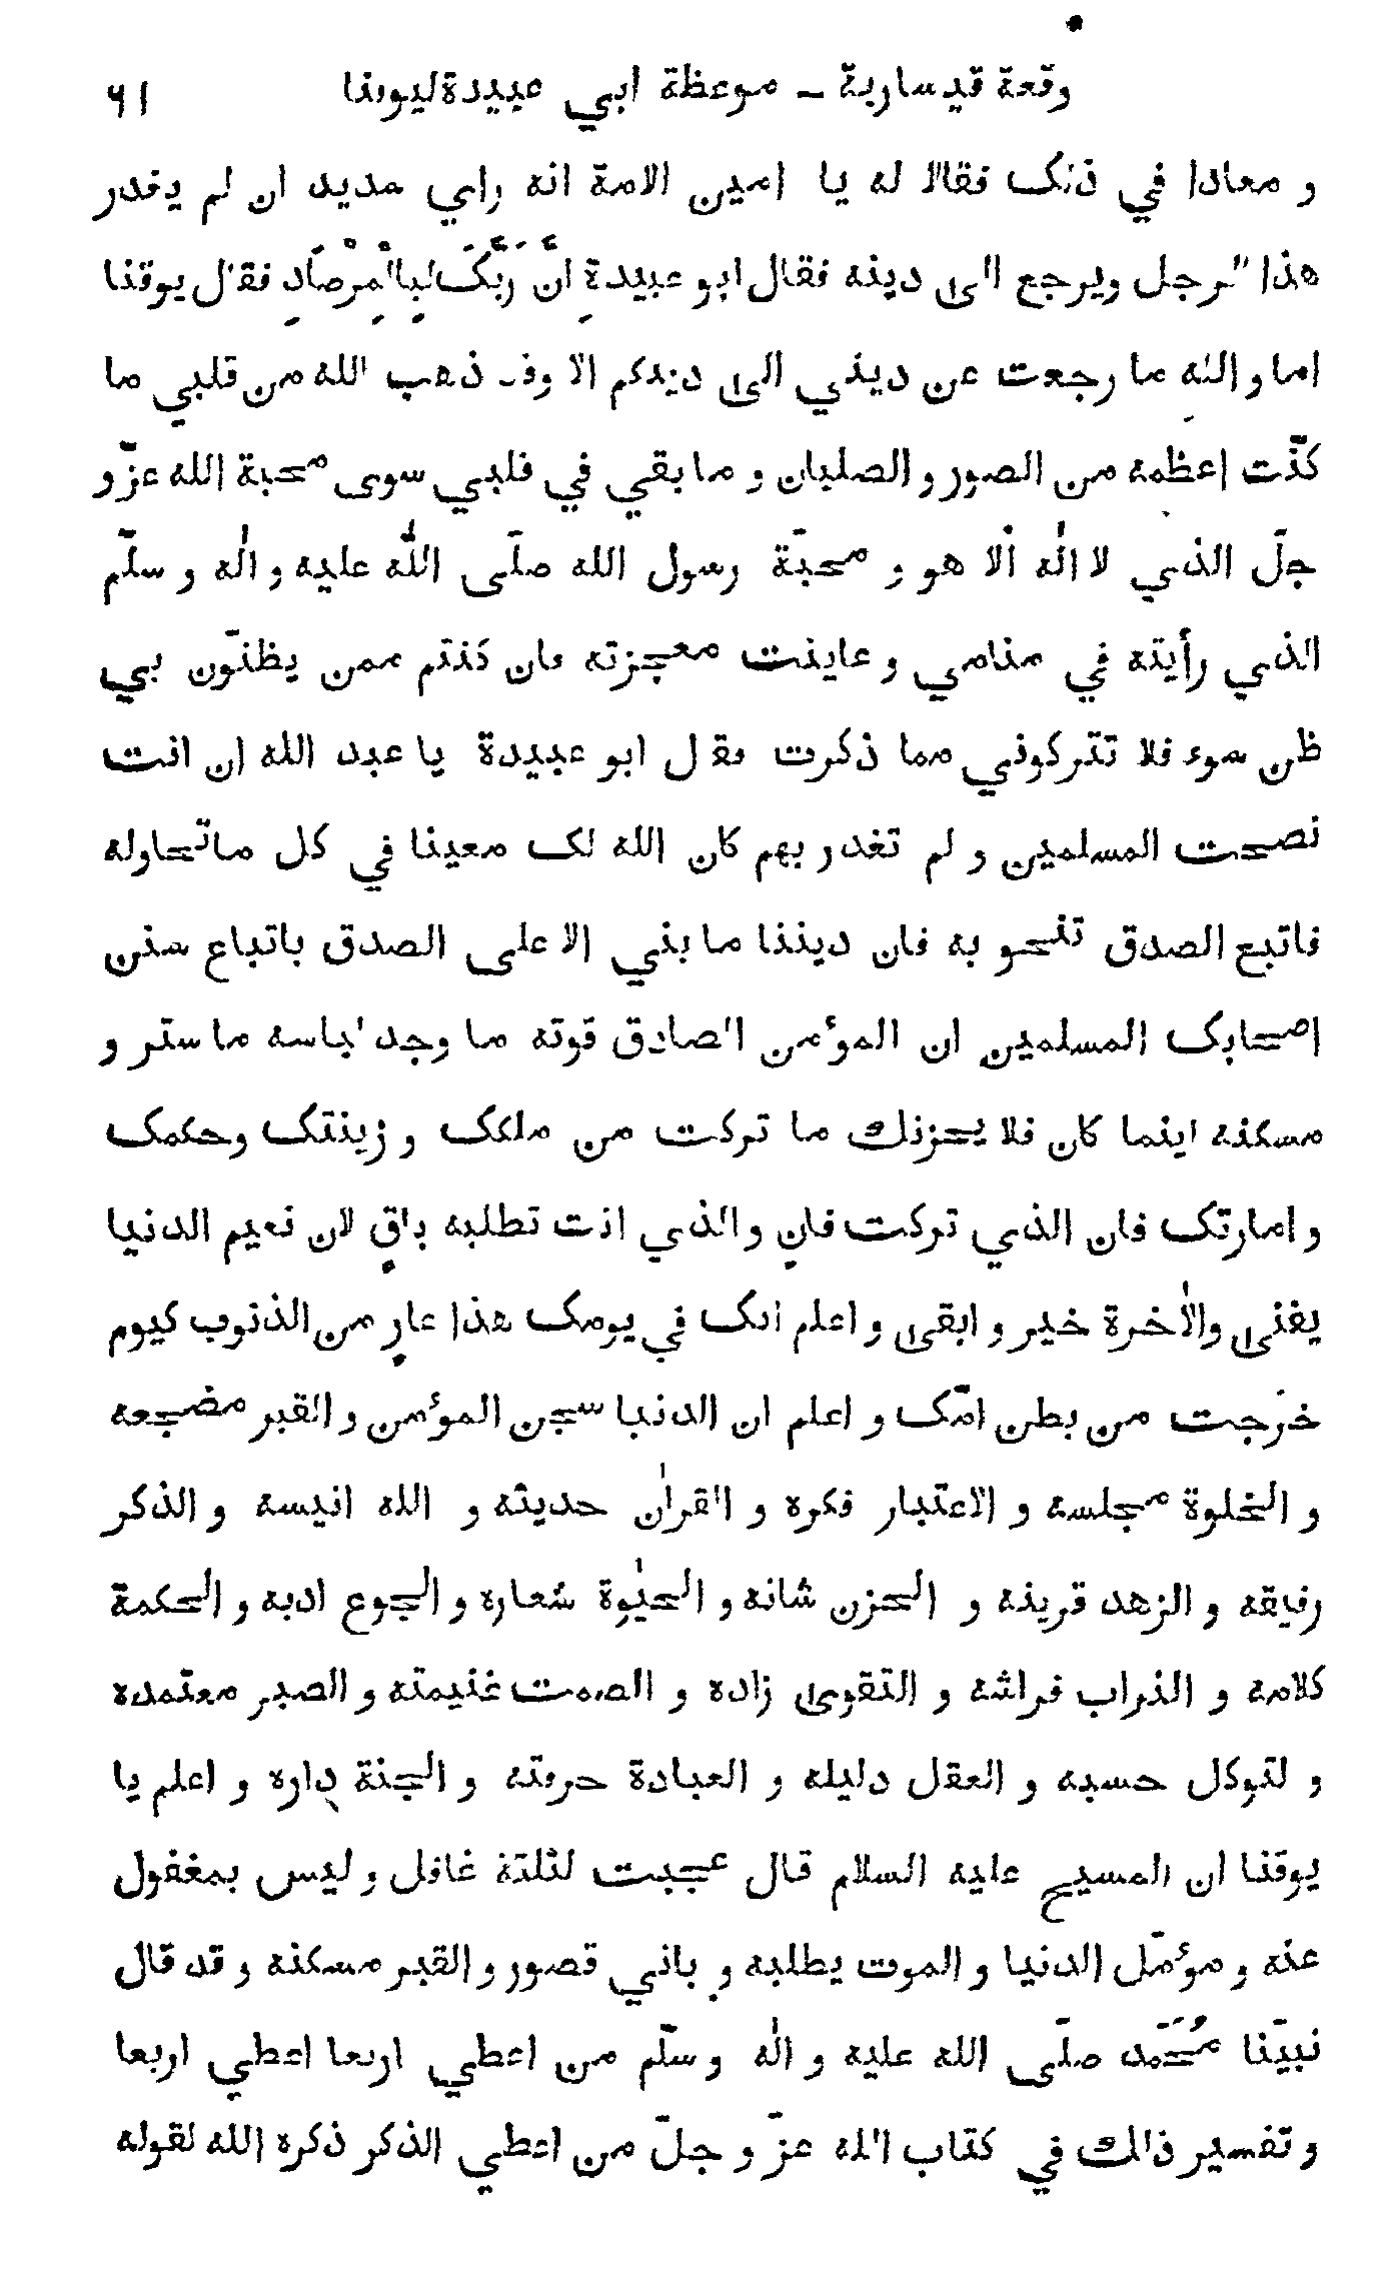 وقعة قيسارية - موعظة ابي عبيدة ليوقنا ٦١
و معاذا في ذلك فقالا له يا امين الامة انه راي سديد ان لم يغدر
هذا الرجل ويرجع الى دينه فقال ابو عبيدة إنَّ رَبَّكَ لَبِالْمِرْصَادِ فقال يوقنا
اما والله ما رجعت عن ديني الى دينكم الا وقد ذهب الله من قلبي ما
كنّت اعظمه من الصور و الصلبان و ما بقي في قلبي سوى محبة الله عزّ و
جلّ الذي لا الٰه الا هو و محبّة رسول الله صلّى اللّٰه عليه و الٰه و سلّم
الذي رأيته في منامي و عاينت معجزته فان كنتم ممن يظنّون بي
ظن سوء فلا تتركوني مما ذكرت فقال ابو عبيدة يا عبد الله ان انت
نصحت المسلمين و لم تغدر بهم كان الله لك معينا في كل ما تحاوله
فاتبع الصدق تنحو به فان ديننا ما بني الا على الصدق باتباع سنن
اصحابك المسلمين ان المؤمن الصادق قوته ما وجد لباسه ما ستر و
مسكنه اينما كان فلا يحزنك ما تركت من ملكك و زينتك وحكمك
و امارتك فان الذي تركت فانٍ و الذي انت تطلبه باقٍ لان نعيم الدنيا
يفنى والاٰخرة خير و ابقى و اعلم انك في يومك هذا عارٍ من الذنوب كيوم
خرجت من بطن امّك و اعلم ان الدنيا سجن المؤمن و القبر مضجعه
و الخلوة مجلسه و الاعتبار فكره و القراٰن حديثه و الله انيسه و الذكر
رفيقه و الزهد قرينه و الحزن شانه و الحيٰوة شعاره و الجوع ادبه و الحكمة
كلامه و التراب فراشه و التقوى زاده و الصمت غنيمته و الصبر معتمده
و لتوكل حسبه و العقل دليله و العبادة حرفته و الجنة داره و اعلم يا
يوقنا ان المسيح عليه السلام قال عجبت لثلثة غافل و ليس بمغفول
عنه و مؤمّل الدنيا و الموت يطلبه و باني قصور و القبر مسكنه و قد قال
نبيّنا مُحَمّد صلّى الله عليه و الٰه و سلّم من اعطي اربعا اعطي اربعا
و تفسير ذالك في كتاب الله عزّ و جلّ من اعطي الذكر ذكره الله لقوله